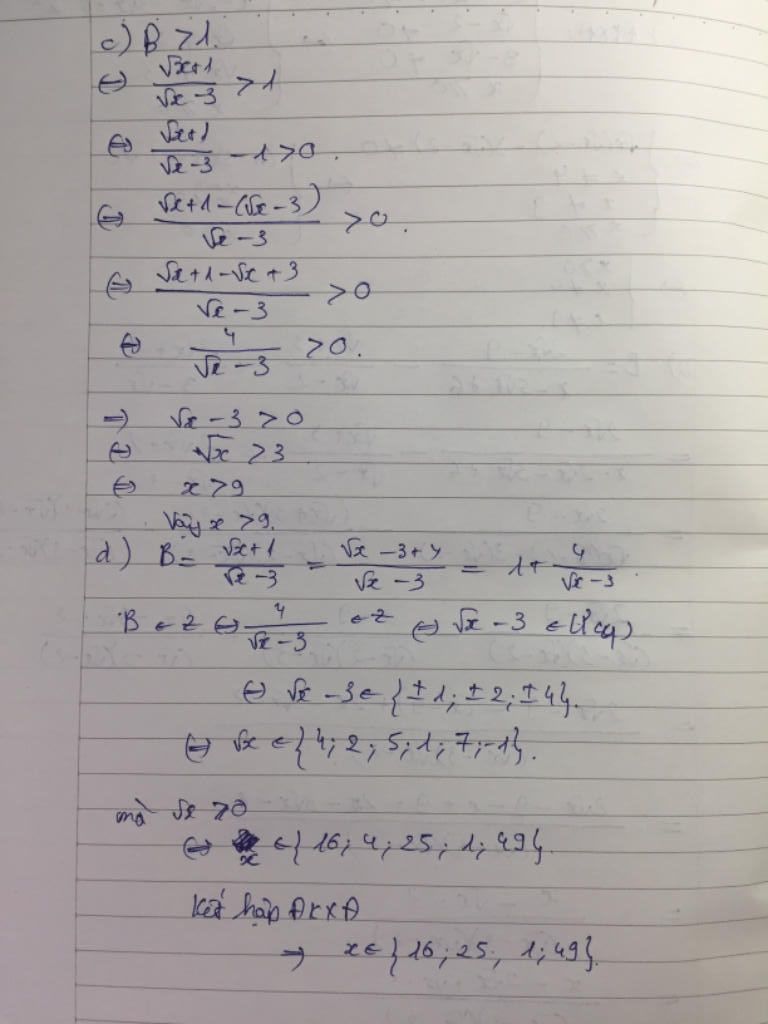 c) B > 1.
⇔ (√x+1)/(√x-3) > 1
⇔ (√x+1)/(√x-3) - 1 > 0.
⇔ (√x+1-(√x-3))/(√x-3) > 0.
⇔ (√x+1-√x+3)/(√x-3) > 0
⇔ 4/(√x-3) > 0.
⇒ √x - 3 > 0
⇔ √x > 3
⇔ x > 9
Vậy x > 9.
d) B = (√x+1)/(√x-3) = (√x-3+4)/(√x-3) = 1 + 4/(√x-3).
B ∈ Z ⇔ 4/(√x-3) ∈ Z ⇔ √x - 3 ∈ Ư(4)
⇔ √x - 3 ∈ {±1; ±2; ±4}.
⇔ √x ∈ {4; 2; 5; 1; 7; -1}.
mà √x ⩾ 0
⇔ x ∈ {16; 4; 25; 1; 49}.
Kết hợp ĐKXĐ
⇒ x ∈ {16; 25; 1; 49}.